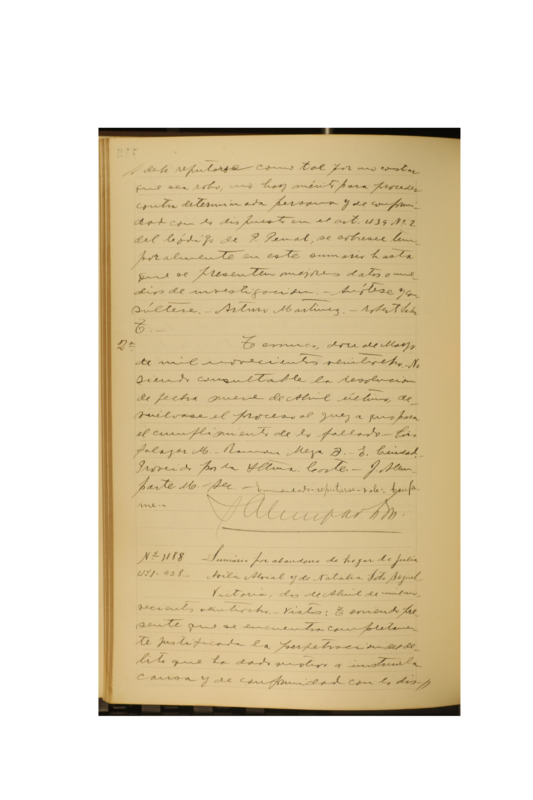 debe reputarse como tal por no constar
que sea robo, no hay mérito para proceder
contra determinada persona y de conformi-
dad con lo dispuesto en el art. 439 N.2
del Código de P. Penal, se sobresee tem-
poralmente en este sumario hasta
que se presenten mejores datos o me-
dios de investigación. - Anótese y con-
súltese. - Arturo Martínez. - Robert
T. -
2ª Temuco, doce de Mayo
de mil novecientos veintiocho. - No
siendo consultable la resolución
de fecha nueve de Abril último, de-
vuélvase el proceso al juez a quo para
el cumplimiento de lo fallado. - Luis
Salazar M. - Ramon Meza -
Proveido por la Iltma. Corte. - J. Alem-
parte M. Sec. - Enmendado - reputarse - vale. Confor-
me. -
J Alemparte M.
Nº 1188 Sumario por abandono de hogar de Julia
Avila Moral y de Natalia Soto
Victoria, dos de Abril de mil no-
vecientos veintiocho. - Vistos: Teniendo pre-
sente que se encuentra completamen-
te justificada la perpetracion del de-
lito que ha dado motivo a instruir la
causa y de conformidad con lo dis-